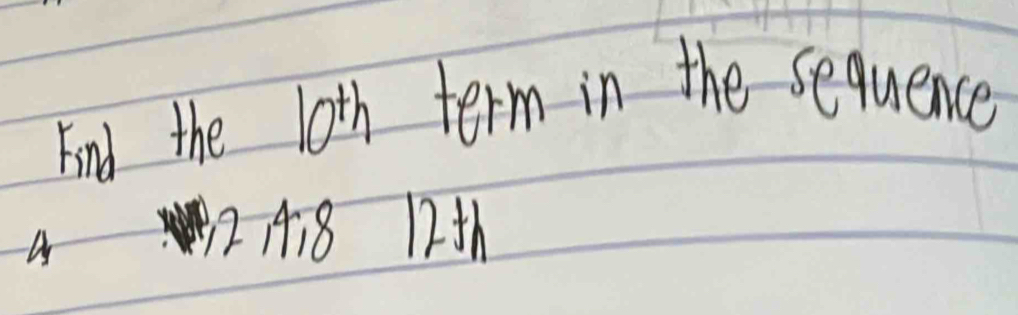 Find the 10th term in the sequence
,2,4,8 12th